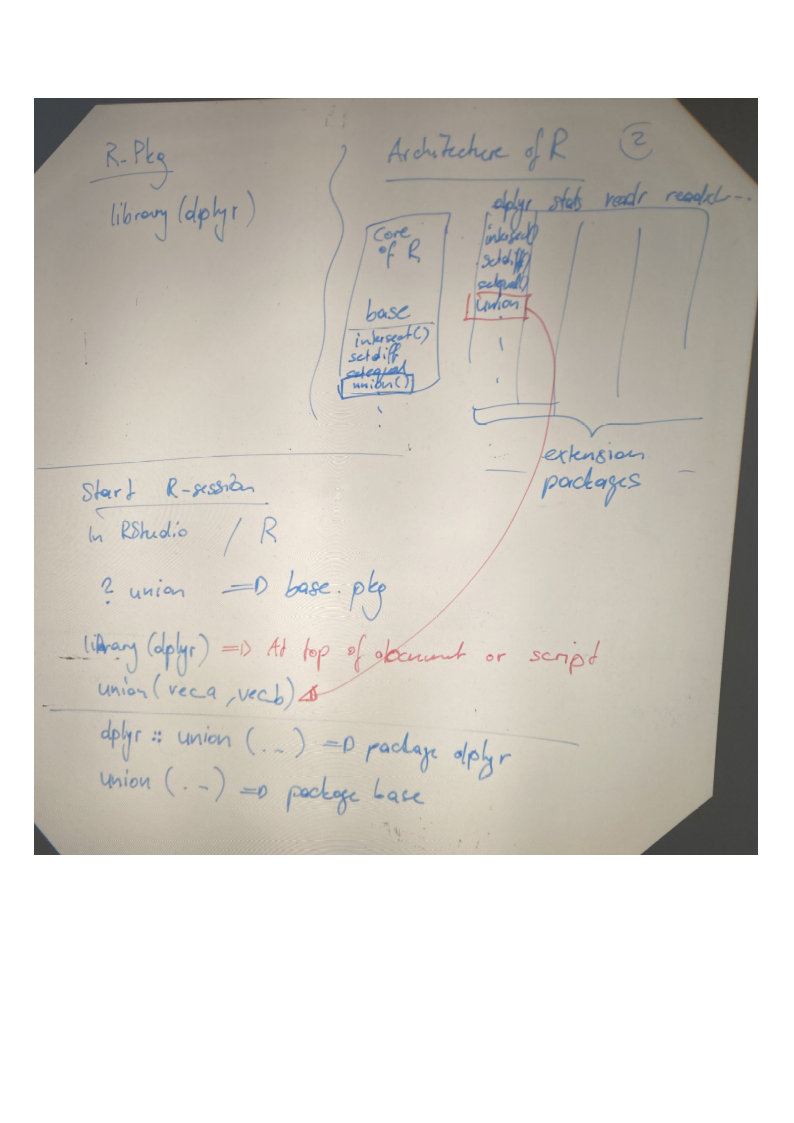 R-Pkg
library(dplyr)
Architecture of R
2
dplyr stats readr readxl ...
core
of R
base
intersect()
setdiff
setequal
union()
intersect()
setdiff()
setequal()
union
extension
packages
Start R-session
In RStudio / R
? union => base.pkg
library(dplyr) => At top of document or script
union(veca, vecb)
dplyr :: union (...) => package dplyr
union (...) => package base